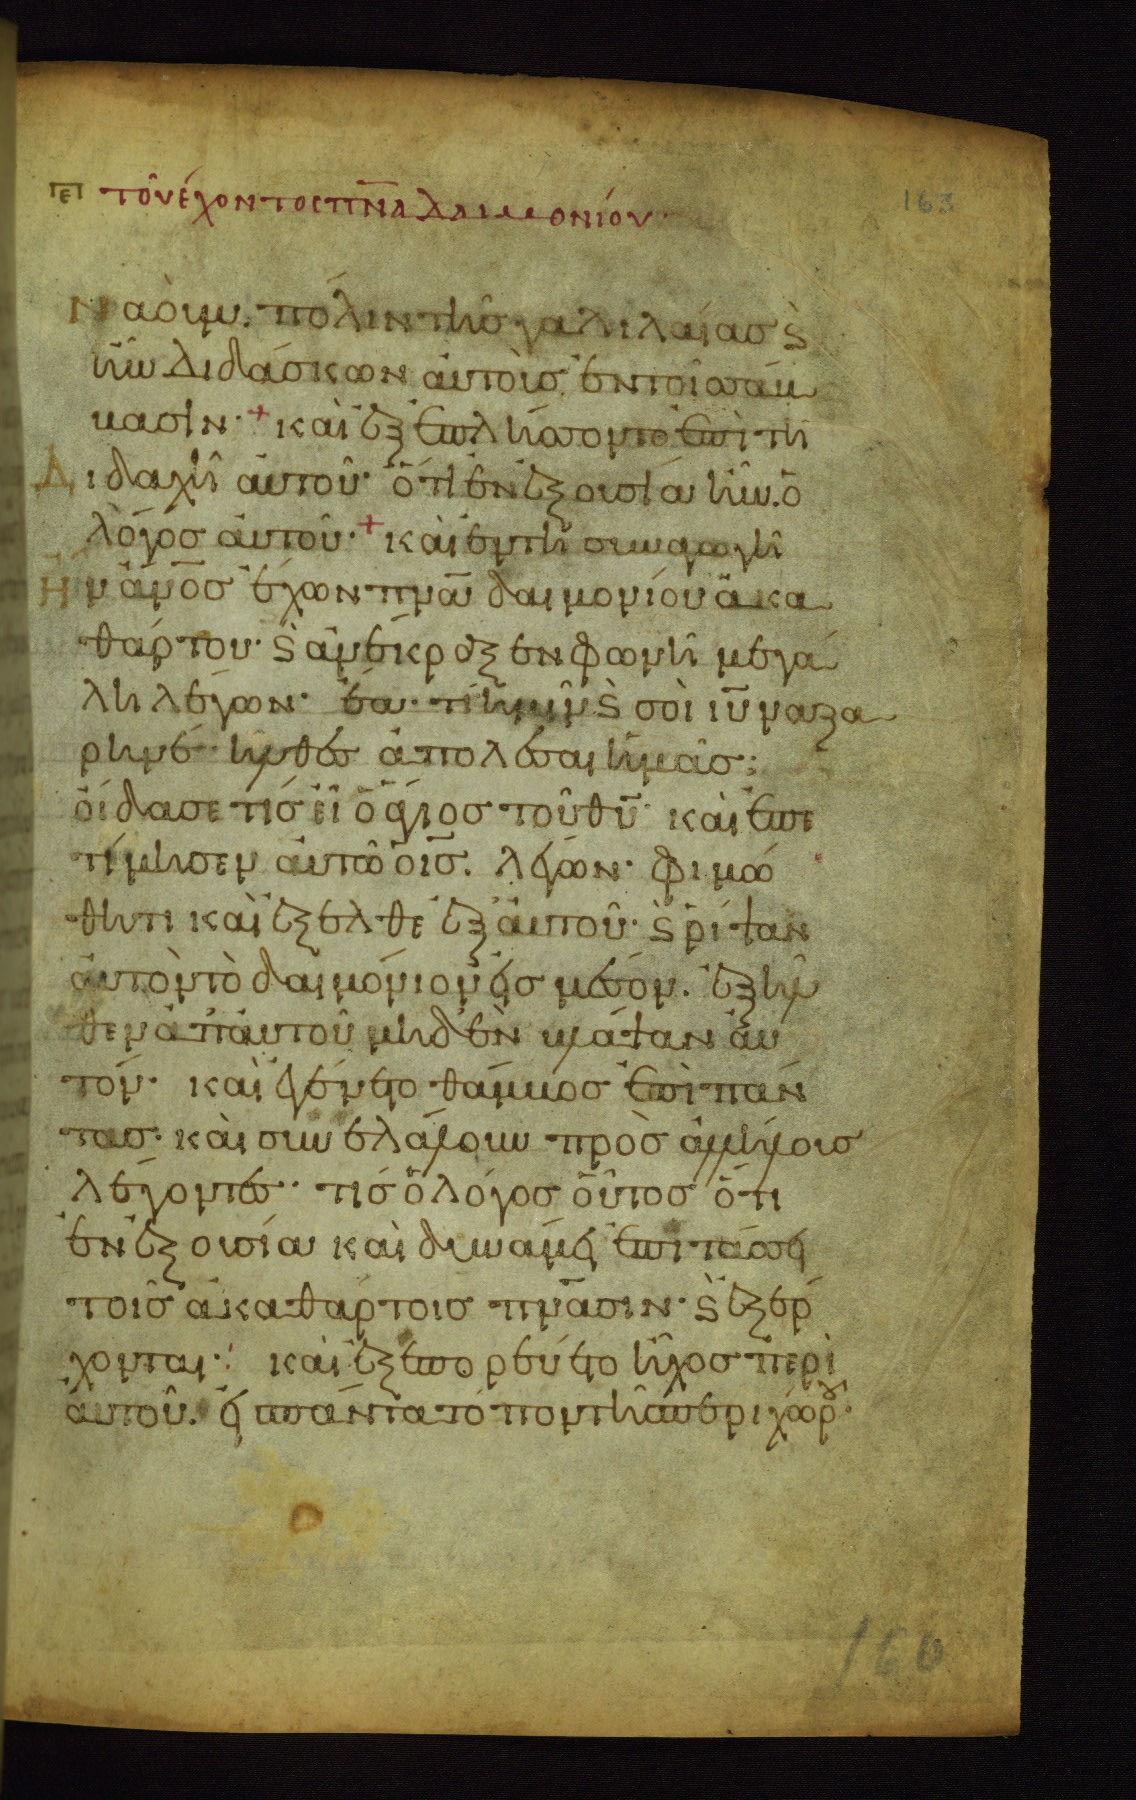 πε τοῦ ἔχοντος πν̅α δαιμονίου·
163
ναοὺμ. πόλιν τῆς γαλιλαίας ϗ
ἦν διδάσκων αὐτοὺς ἐν τοῖς σάβ
βασιν· + καὶ ἐξεπλήσσοντο ἐπὶ τῇ
διδαχῇ αὐτοῦ· ὅτι ἐν ἐξουσίᾳ ἦν. ὁ
λόγος αὐτοῦ· + καὶ ἐν τῇ συναγωγῇ
ἦν ἄν̅ο̅ς ἔχων πν̅α δαιμονίου ἀκα
θάρτου· ϗ ἀνέκραξεν φωνῇ μεγά
λῃ λέγων· ἔα· τί ἡμῖν ϗ σοὶ ιυ̅ ναζα
ρηνέ· ἦλθες ἀπολέσαι ἡμᾶς;
οἶδα σε τίς εἶ ὁ ἅγιος τοῦ θυ̅· καὶ ἐπε
τίμησεν αὐτῶ ὁ ισ̅. λέγων· φιμώ
θητι καὶ ἔξελθε ἐξ αὐτοῦ· ϗ ρίψαν
αὐτὸν τὸ δαιμόνιον εἰς μέσον. ἐξῆλ
θεν ἀπ' αὐτοῦ μηδὲν βλάψαν αὐ
τόν· καὶ ἐγένετο θάμβος ἐπὶ πάν
τας· καὶ συνελάλουν πρὸς ἀλλήλους
λέγοντες· τίς ὁ λόγος οὗτος ὅτι
ἐν ἐξουσίᾳ καὶ δυνάμει ἐπιτάσσει
τοῖς ἀκαθάρτοις πν̅ασιν· ϗ ἐξέρ
χονται· καὶ ἐξεπορεύετο ἦχος περὶ
αὐτοῦ. εἰς πάντα τόπον τῆς περιχώρου·
160